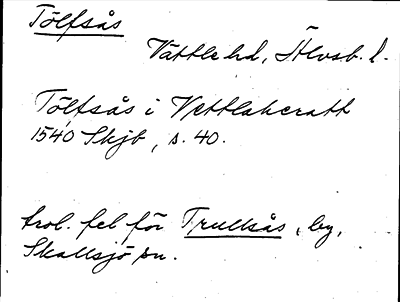 Tölfsås
Vättle hd, Älvsb. l.
Tölfsås i Vettlaheratt
1540 Skjb, s. 40.
trol. fel för Trullsås, by,
Skallsjö sn.